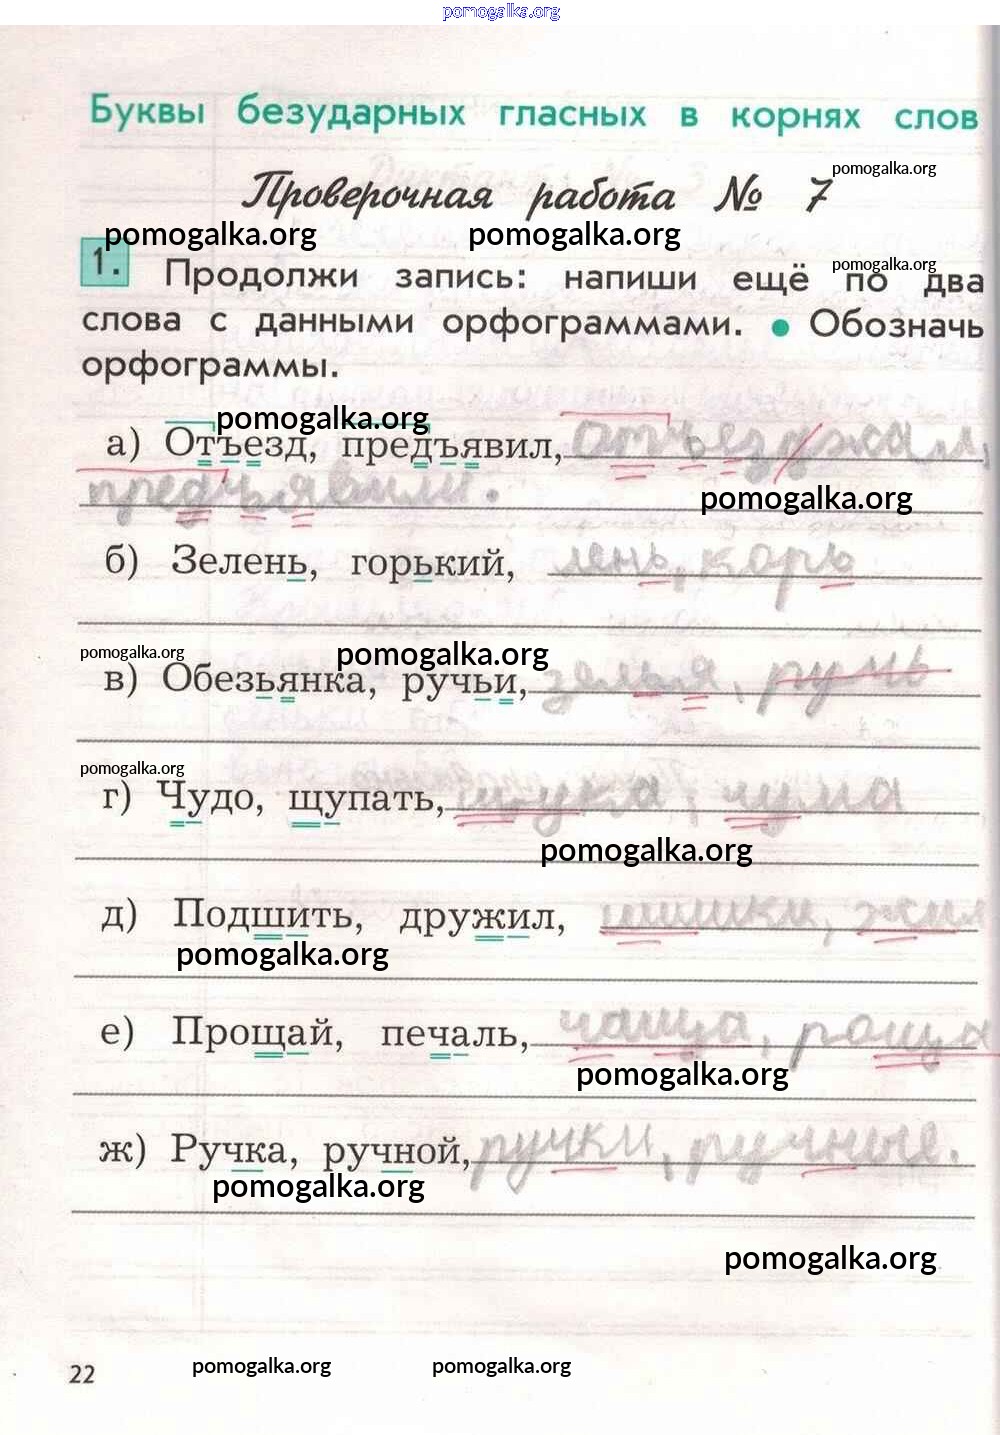 pomogalka.org
Буквы безударных гласных в корнях слов
pomogalka.org
Проверочная работа № 7
pomogalka.org pomogalka.org
1. Продолжи запись: напиши ещё по два
pomogalka.org
слова с данными орфограммами. ● Обозначь
орфограммы.
pomogalka.org
а) Отъезд, предъявил, отъезджал,
предъявили.
pomogalka.org
б) Зелень, горький, лень, корь
pomogalka.org pomogalka.org
в) Обезьянка, ручьи, зелья, румь
pomogalka.org
г) Чудо, щупать, щука, чума
pomogalka.org
д) Подшить, дружил, шишки, жил
pomogalka.org
е) Прощай, печаль, чаща, роща
pomogalka.org
ж) Ручка, ручной, ручки, ручные.
pomogalka.org
pomogalka.org
22 pomogalka.org pomogalka.org